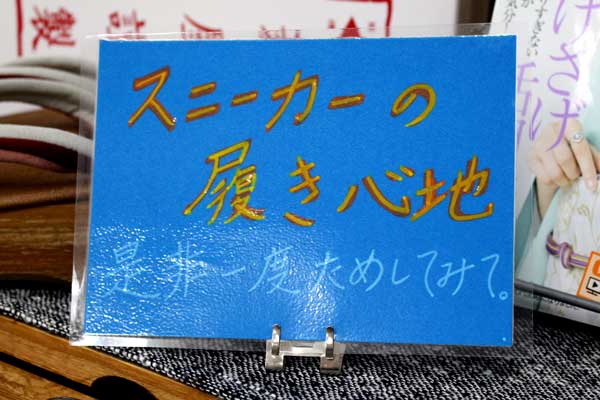 スニーカーの
履き心地
是非一度ためしてみて。
製
げさげ